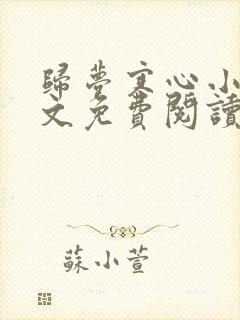 歸夢寒心小
文免費閱讀
蘇小萱